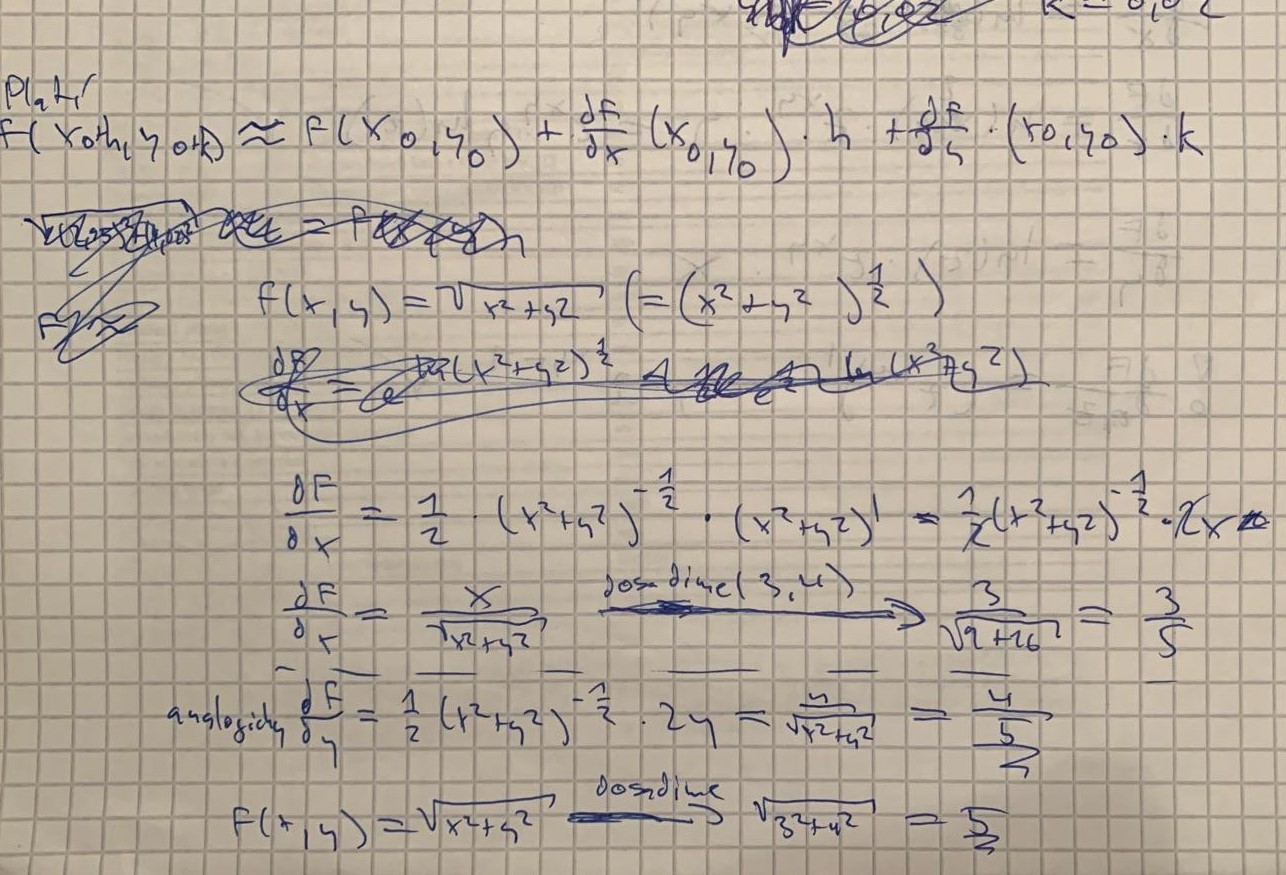 k = 0,02
Platí
f(x0+h, y0+k) ≈ f(x0, y0) + ∂f/∂x (x0, y0) · h + ∂f/∂y · (x0, y0) · k
f(x, y) = √(x²+y²) (= (x²+y²)^(1/2))
∂f/∂x = 1/2 · (x²+y²)^(-1/2) · (x²+y²)' = 1/2 (x²+y²)^(-1/2) · 2x
∂f/∂x = x/√(x²+y²) dosadíme (3,4) → 3/√(9+16) = 3/5
analogicky ∂f/∂y = 1/2 (x²+y²)^(-1/2) · 2y = y/√(x²+y²) = 4/5
f(x, y) = √(x²+y²) dosadíme → √(3²+4²) = 5